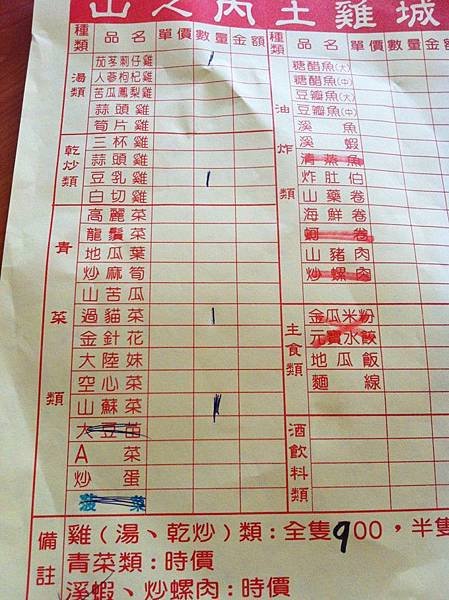 山之內土雞城
種類 品名 單價 數量 金額 種類 品名 單價 數量 金額
湯類
茄苳蒜仔雞 1
人蔘枸杞雞
苦瓜鳳梨雞
蒜頭雞
筍片雞
乾炒類
三杯雞
蒜頭雞
豆乳雞 1
白切雞
青菜類
高麗菜
龍鬚菜
地瓜葉
炒麻筍
山苦瓜
過貓菜 1
金針花
大陸妹
空心菜
山蘇菜 1
大豆苗
A菜
炒蛋
菠菜
油炸類
糖醋魚(大)
糖醋魚(中)
豆瓣魚(大)
豆瓣魚(中)
溪魚
溪蝦
清蒸魚
炸肚伯
山藥卷
海鮮卷
蚵卷
山豬肉
炒螺肉
主食類
金瓜米粉
元寶水餃
地瓜飯
麵線
酒飲料類
備註
雞(湯、乾炒)類:全隻900,半隻
青菜類:時價
溪蝦、炒螺肉:時價